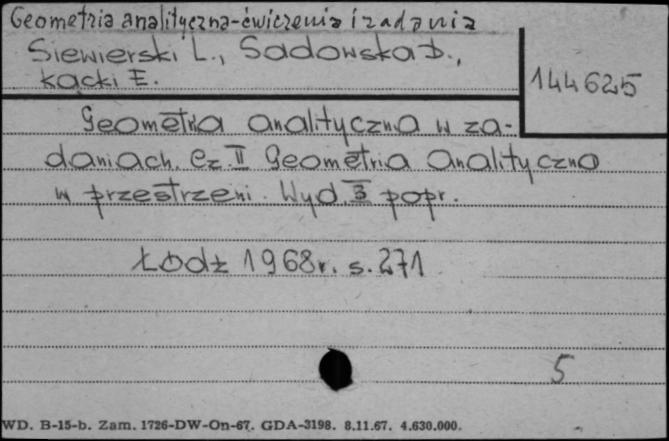 Geometria analityczna-ćwiczenia i zadania
Siewierski L., Sadowska D.,
Kącki E.
144625
Geometria analityczna w za-
daniach. Cz. II Geometria analityczna
w przestrzeni. Wyd. 3 popr.
Łódź 1968r. s. 271
5
WD. B-15-b. Zam. 1726-DW-On-67. GDA-3198. 8.11.67. 4.630.000.